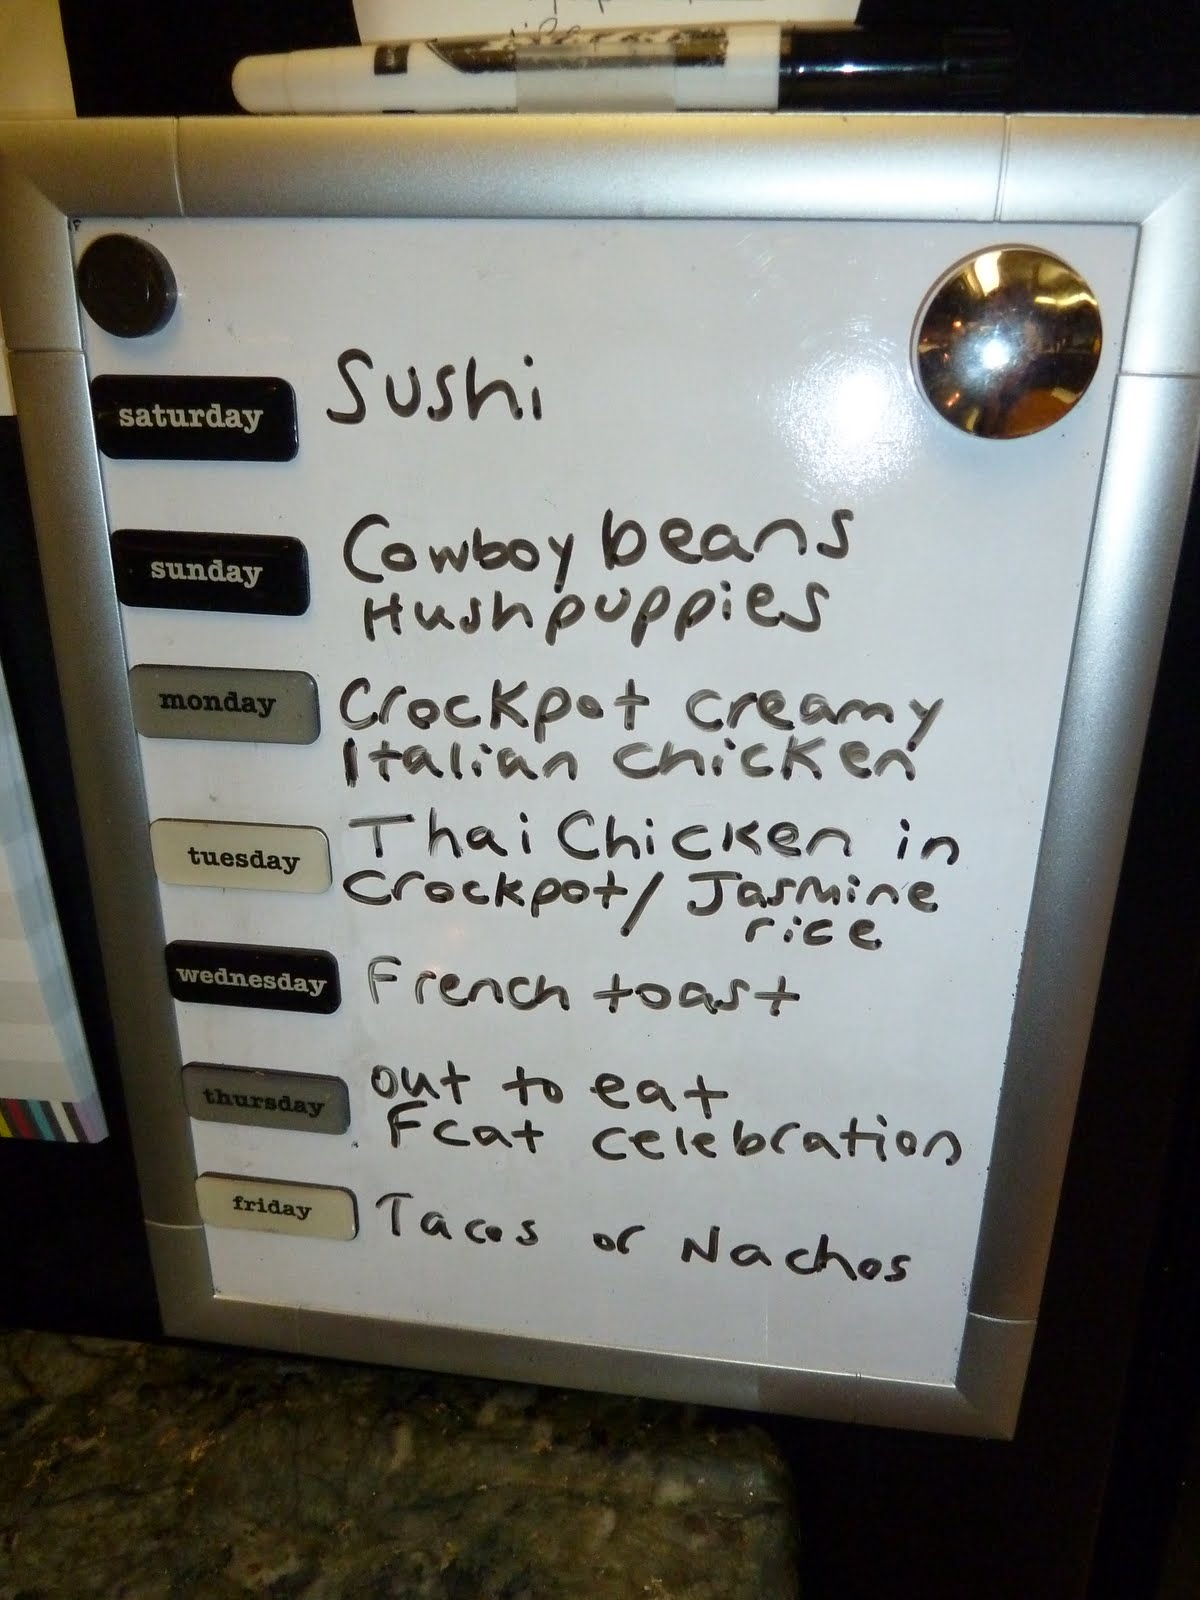 Sushi
saturday
Cowboy beans
sunday
Hushpuppies
monday
Crockpot creamy
Italian chicken
Thai Chicken in
tuesday
Crockpot/ Jasmine
rice
wednesday
French toast
out to eat
thursday
Fcat celebration
friday
Tacos or Nachos